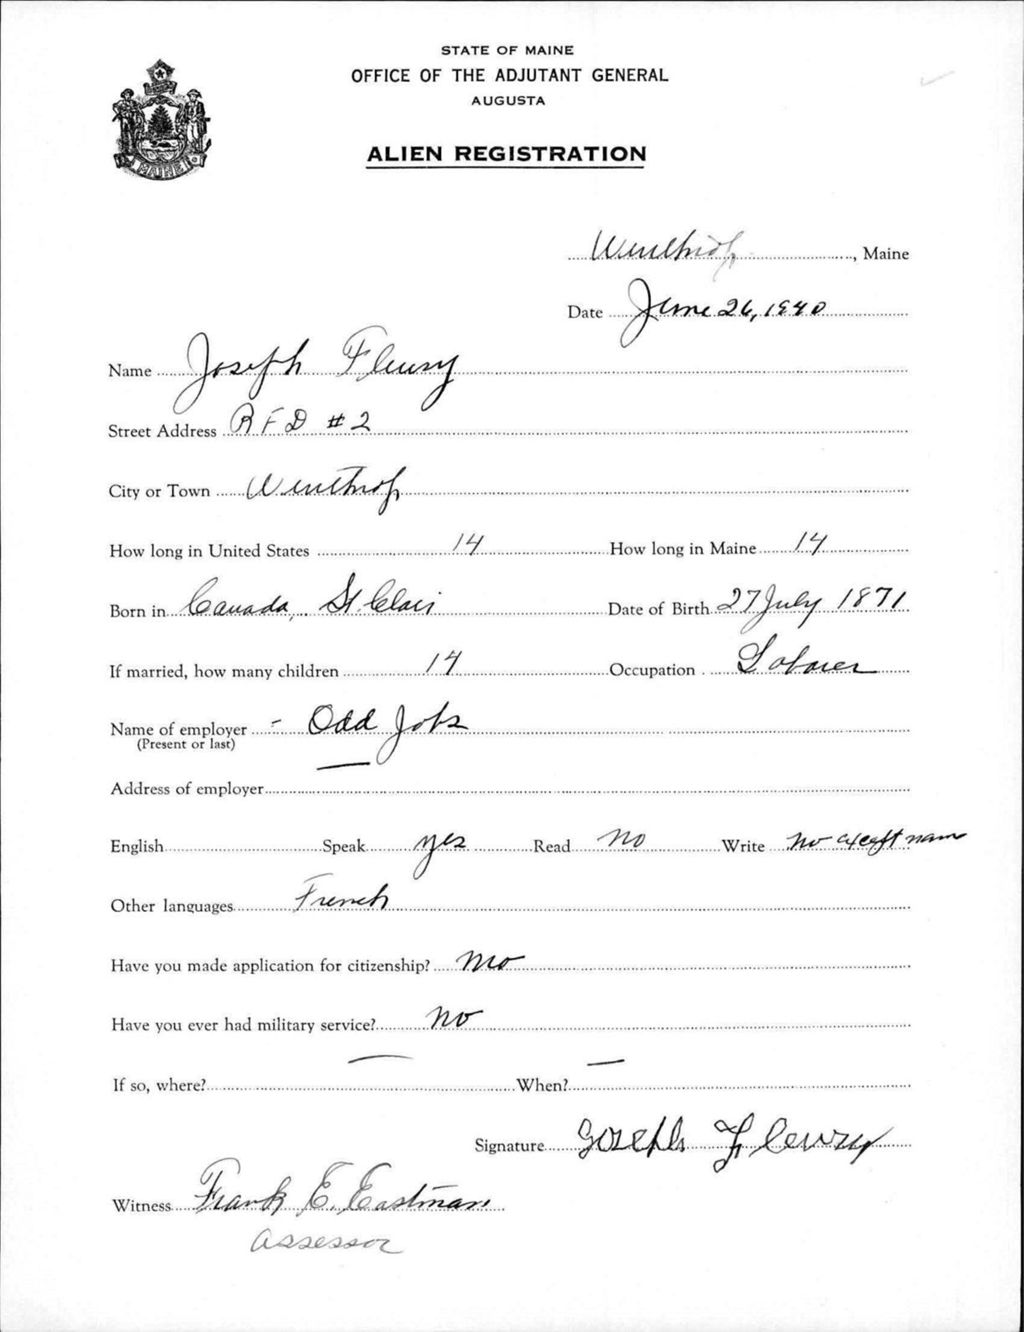 STATE OF MAINE
OFFICE OF THE ADJUTANT GENERAL
AUGUSTA
ALIEN REGISTRATION
MAINE
Winthrop, Maine
Date June 26, 1940
Name Joseph Fleury
Street Address RFD #2
City or Town Winthrop
How long in United States 14 How long in Maine 14
Born in Canada, St Clair Date of Birth 27 July 1871
If married, how many children 14 Occupation Laborer
Name of employer - Odd Jobs
(Present or last)
Address of employer
English Speak yes Read no Write no except name
Other languages French
Have you made application for citizenship? no
Have you ever had military service? no
If so, where? — When? —
Signature Joseph Fleury
Witness Frank E. Eastman
Assessor